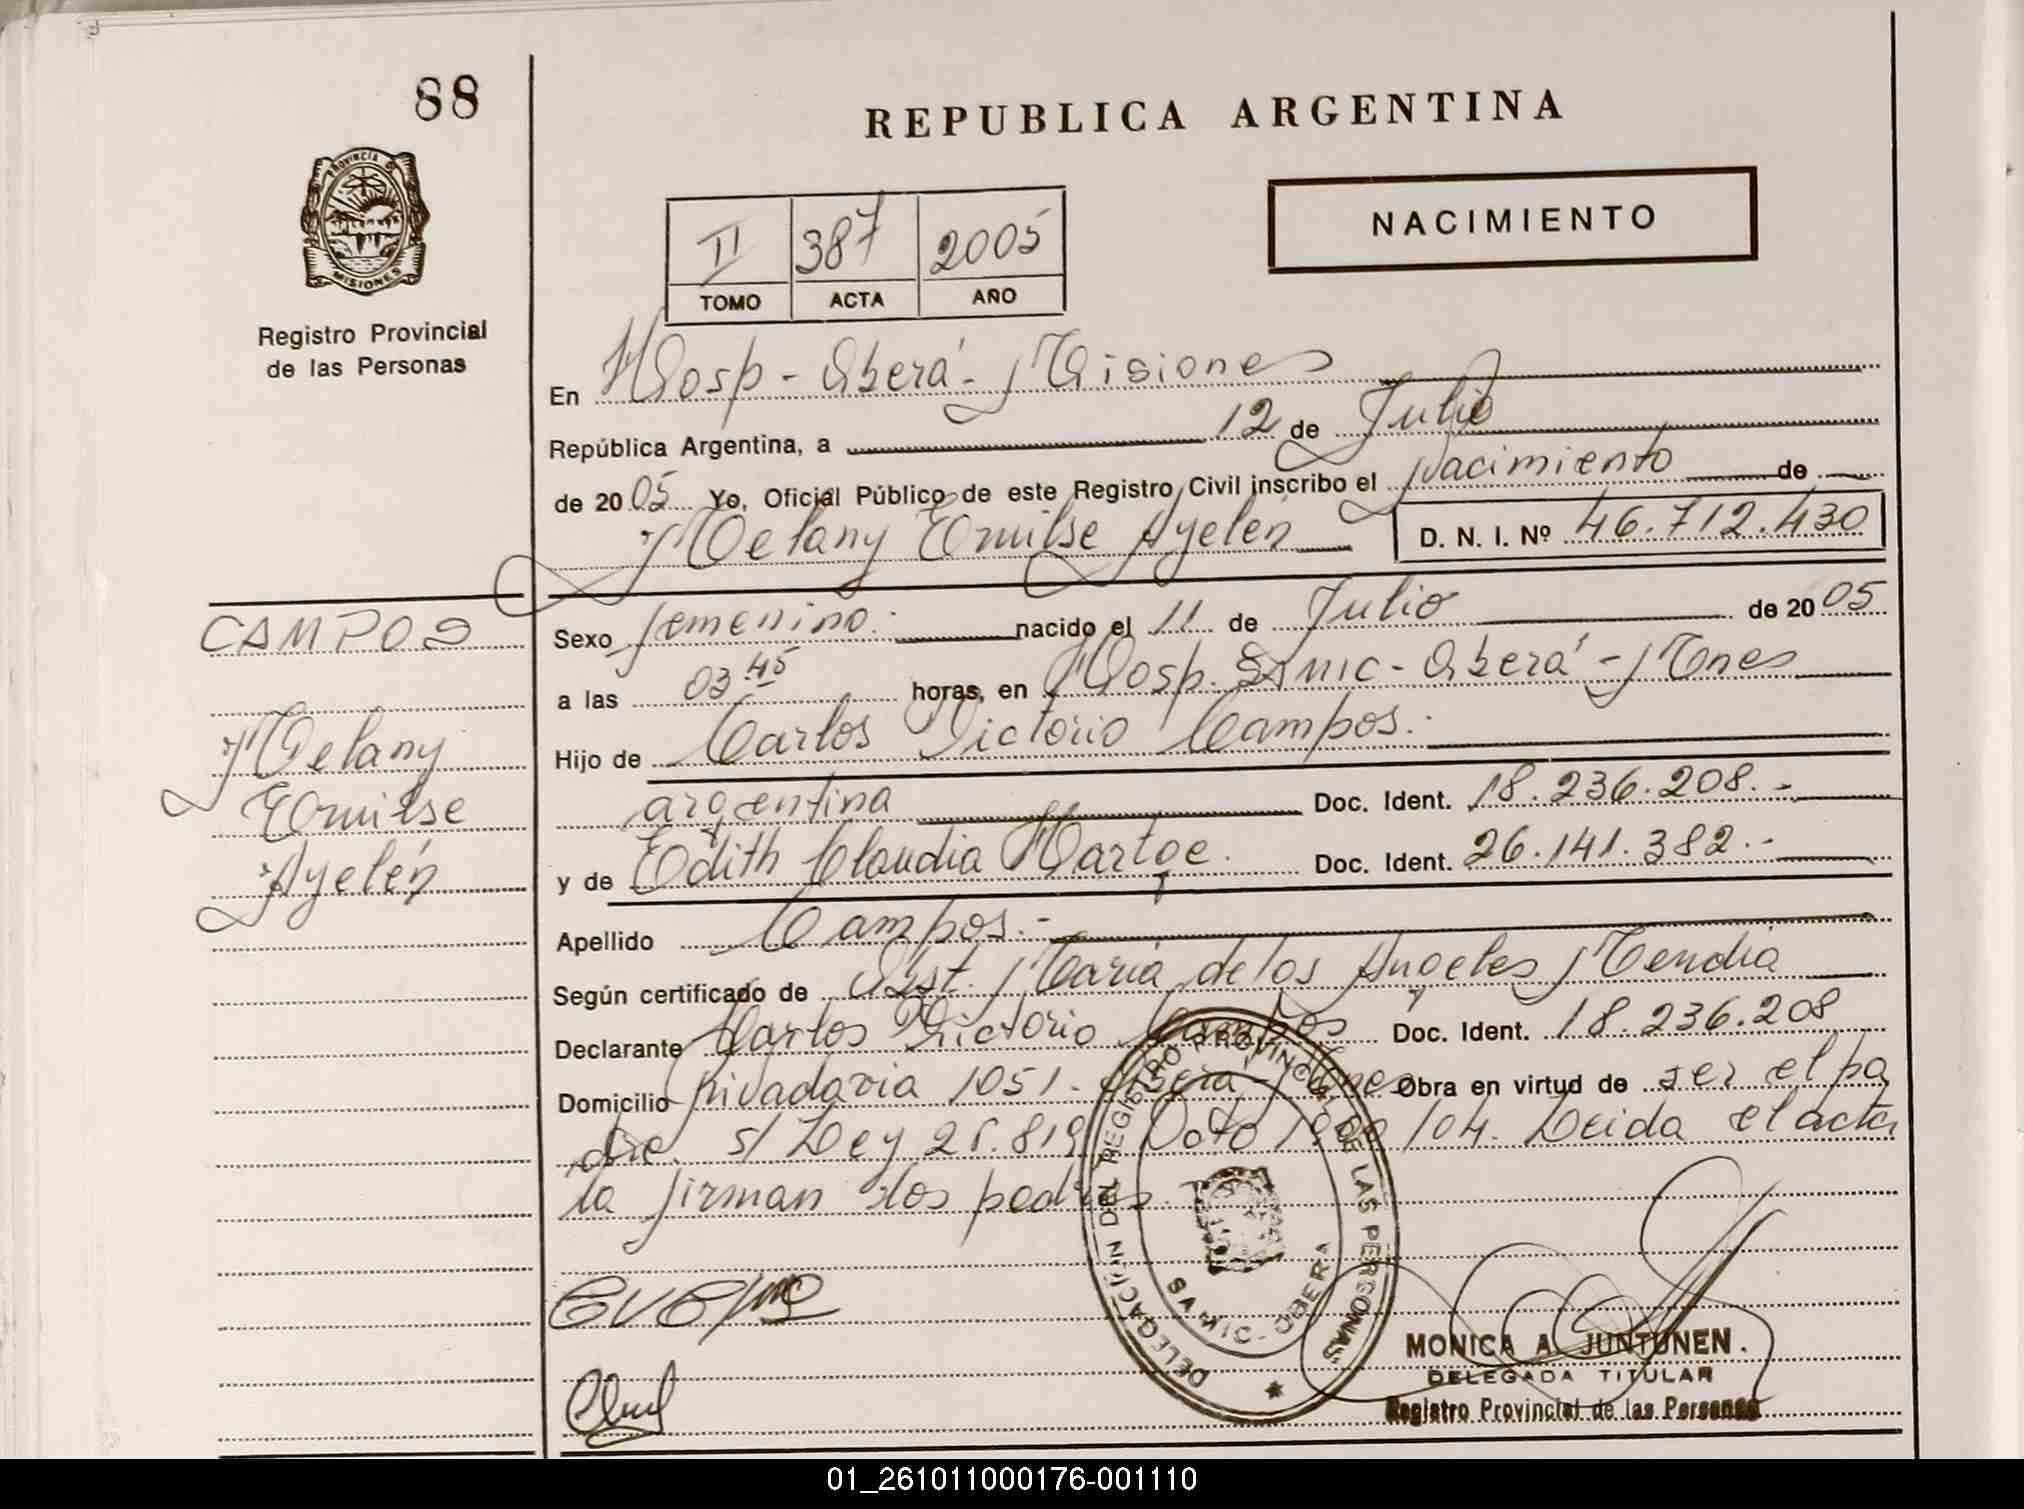 88
REPUBLICA ARGENTINA
PROVINCIA DE
MISIONES
Registro Provincial
de las Personas
NACIMIENTO
II 387 2005
TOMO ACTA AÑO
En Hosp - Oberá - Misiones
República Argentina, a 12 de Julio
de 2005 Yo, Oficial Público de este Registro Civil inscribo el Nacimiento de
Melany Emilse Ayelén D. N. I. Nº 46.712.430
CAMPOS
Melany
Emilse
Ayelén
Sexo femenino. nacido el 11 de Julio de 2005
a las 03.45 horas, en Hosp. SAMIC - Oberá - Mnes
Hijo de Carlos Victorio Campos.
argentina Doc. Ident. 18.236.208.-
y de Edith Claudia Doc. Ident. 26.141.382.-
Apellido Campos.-
Según certificado de Obst. Maria de los Angeles Mendia
Declarante Carlos Victorio Campos Doc. Ident. 18.236.208
Domicilio Rivadavia 1051 - Oberá Mnes Obra en virtud de ser el pa
dre. s/ Ley 25.819 Dcto /04. Leida el acta
la firman los padres.
DELEGACION DEL REGISTRO PROVINCIAL DE LAS PERSONAS
SAMIC - OBERA
MONICA A. JUNTUNEN.
DELEGADA TITULAR
Registro Provincial de las Personas
01_261011000176-001110